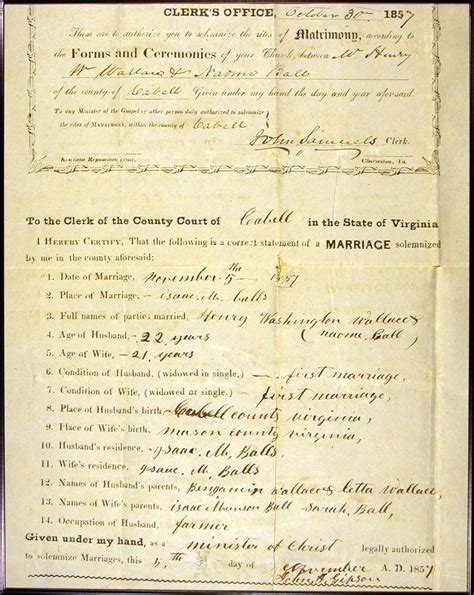 CLERK'S OFFICE, October 30th 1857
These are to authorize you to solemnize the rites of Matrimony, according to the
Forms and Ceremonies of your Church, between Mr Henry
Wm Wallace & Naome Ball
of the county of Cabell Given under my hand the day and year aforesaid.
To any Minister of the Gospel or other person duly authorized to solemnize
the rites of MATRIMONY, within the county of Cabell
John Samuels, Clerk.
Kanawha Republican print, Charleston, Va.
To the Clerk of the County Court of Cabell in the State of Virginia
I HEREBY CERTIFY, That the following is a correct statement of a MARRIAGE solemnized
by me in the county aforesaid:
1. Date of Marriage, November 5th 1857
2. Place of Marriage, - isaac. M. balls
3. Full names of parties married, Henry Washington Wallace &
(naome Ball)
4. Age of Husband, - 22 years
5. Age of Wife, - 21, years
6. Condition of Husband, (widowed or single,) - first marriage,
7. Condition of Wife, (widowed or single,) - first marriage,
8. Place of Husband's birth, Cabell county virginia,
9. Place of Wife's birth, mason county virginia,
10. Husband's residence, ysaac. M. Balls,
11. Wife's residence, ysaac. M, Balls,
12. Names of Husband's parents, Bengamin wallace & letta Wallace,
13. Names of Wife's parents, isaac Munson Ball Sarah, Ball,
14. Occupation of Husband, farmer
Given under my hand, as a minister of Christ legally authorized
to solemnize Marriages, this 5th day of November A. D. 1857
Gipson